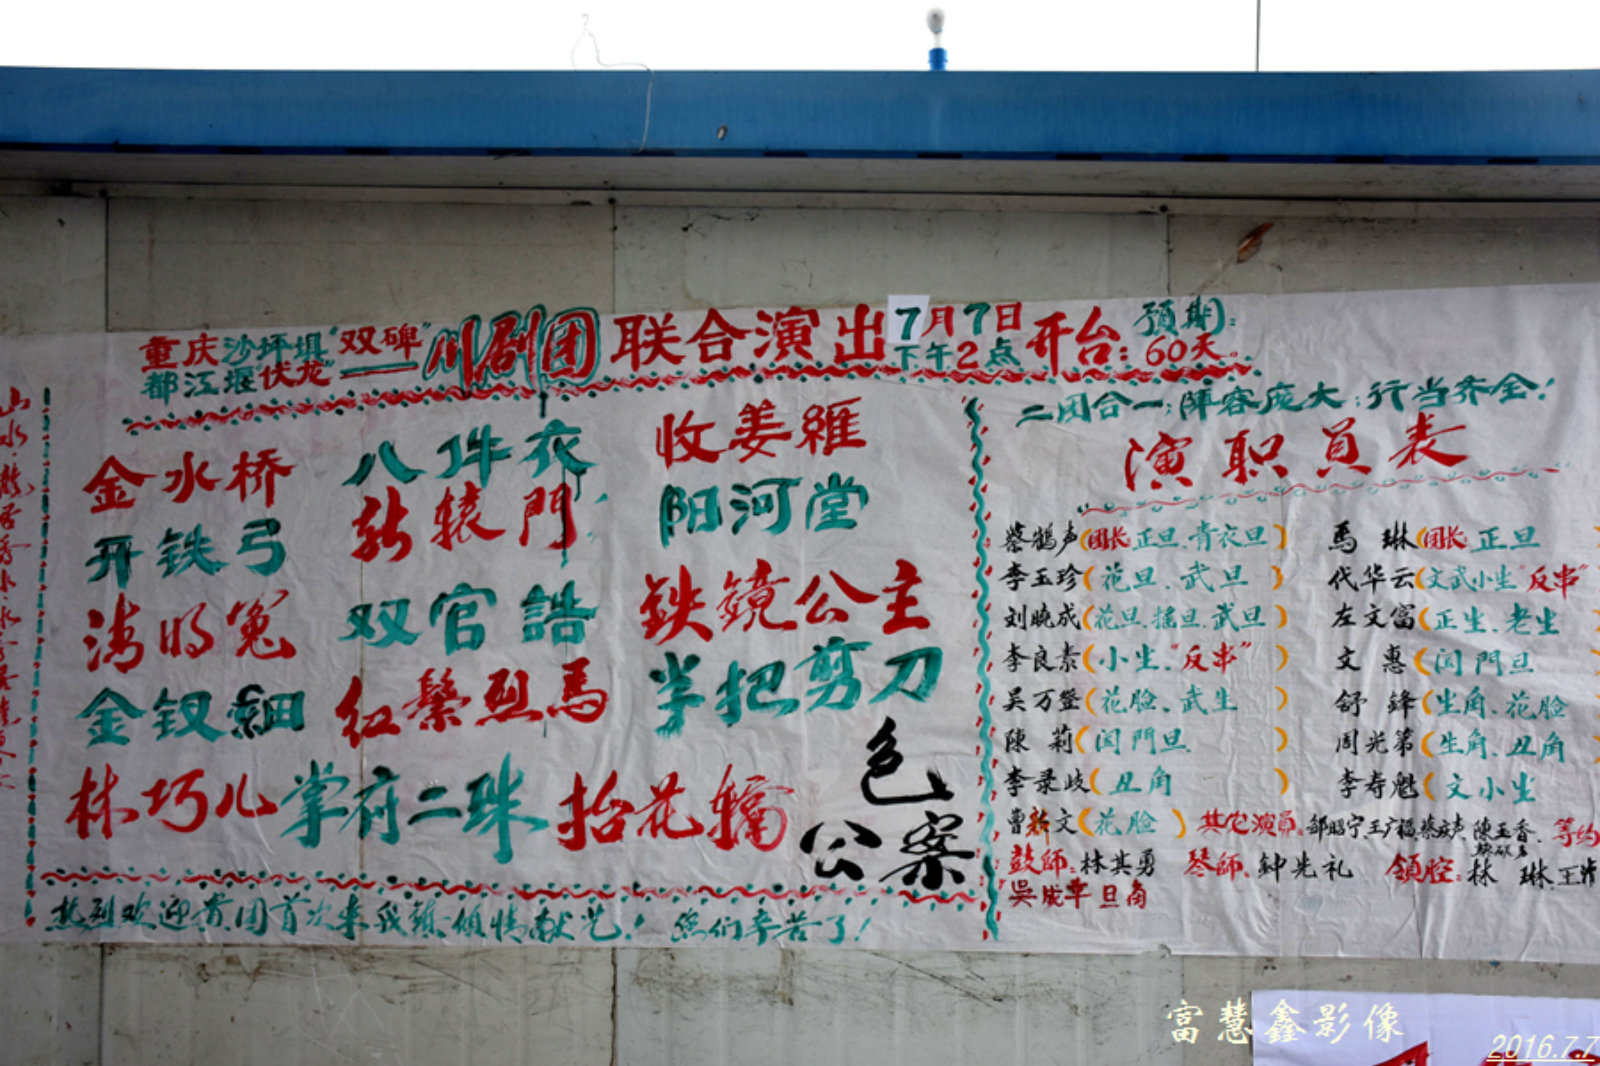 重庆沙坪垻"双碑"
都江堰"伏龙"
川剧团联合演出7月7日
下午2点
开台:
预期:
60天
二团合一;阵容庞大;行当齐全!
演职员表
金水桥
八件衣
收姜維
开铁弓
斩辕門
阳河堂
清明冤
双官誥
鉄鏡公主
金钗鈿
红鬃烈馬
半把剪刀
林巧儿
掌府二珠
抬花轎
包公案
蔡鹤声(团长正旦.青衣旦)
馬琳(团长正旦)
李玉珍(花旦、武旦)
代华云(文武小生"反串"
刘晓成(花旦.摇旦.武旦)
左文富(正生.老生
李良素(小生."反串")
文惠(闺門旦)
吴万登(花脸、武生
舒鋒(生角.花脸
陳莉(闺門旦)
周光第(生角、丑角
李录歧(丑角)
李寿魁(文小生
曹新文(花脸)
其它演員:邹昭宁.王广福.陳玉香.等约
鼓師:林其勇
琴師:鈡光礼
領腔:林琳.王
吴成幸旦角
热烈欢迎贵团首次来我鎮傾情献艺!您们辛苦了!
富慧鑫影像
2016.7.7